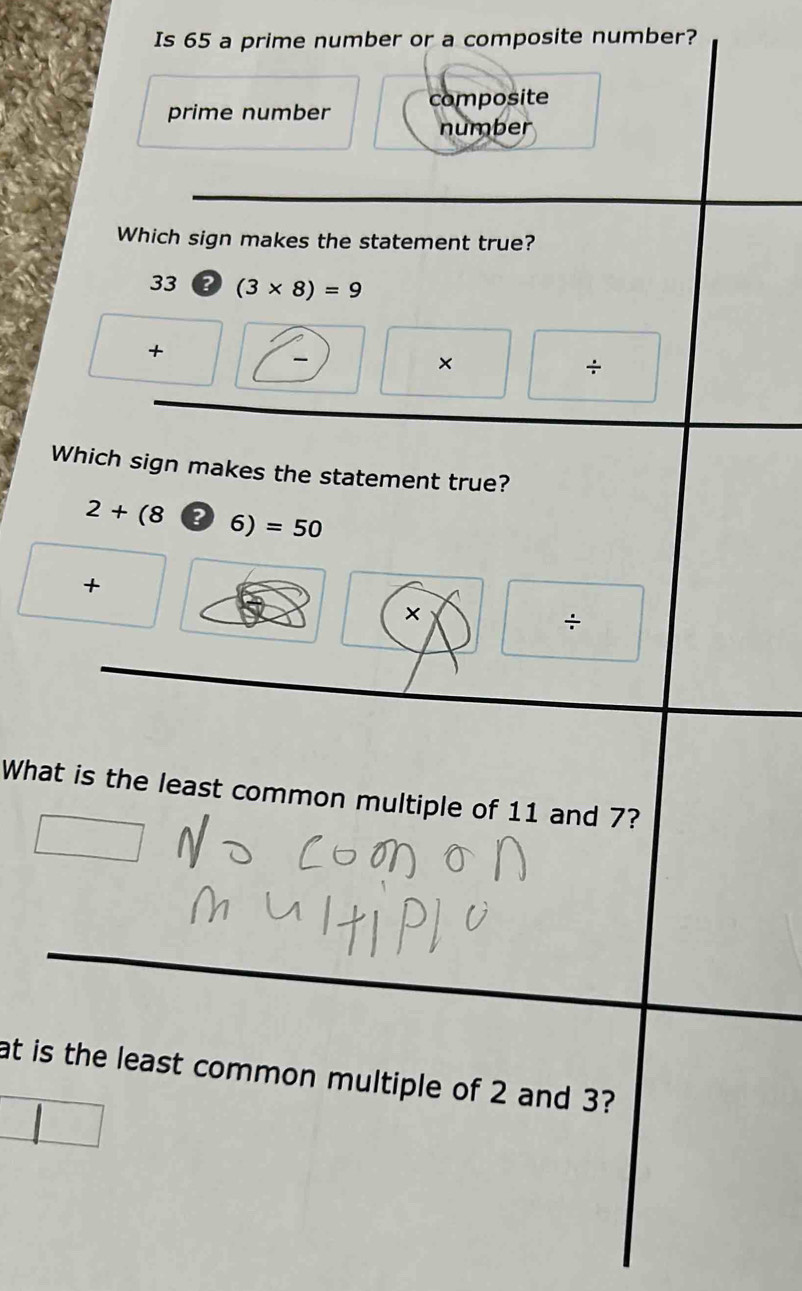 Is 65 a prime number or a composite number?
prime number
composite
number
Which sign makes the statement true?
33 ? (3 × 8) = 9
+ − × ÷
Which sign makes the statement true?
2 + (8 ? 6) = 50
+ − × ÷
What is the least common multiple of 11 and 7?
No comon
multiple
at is the least common multiple of 2 and 3?
1